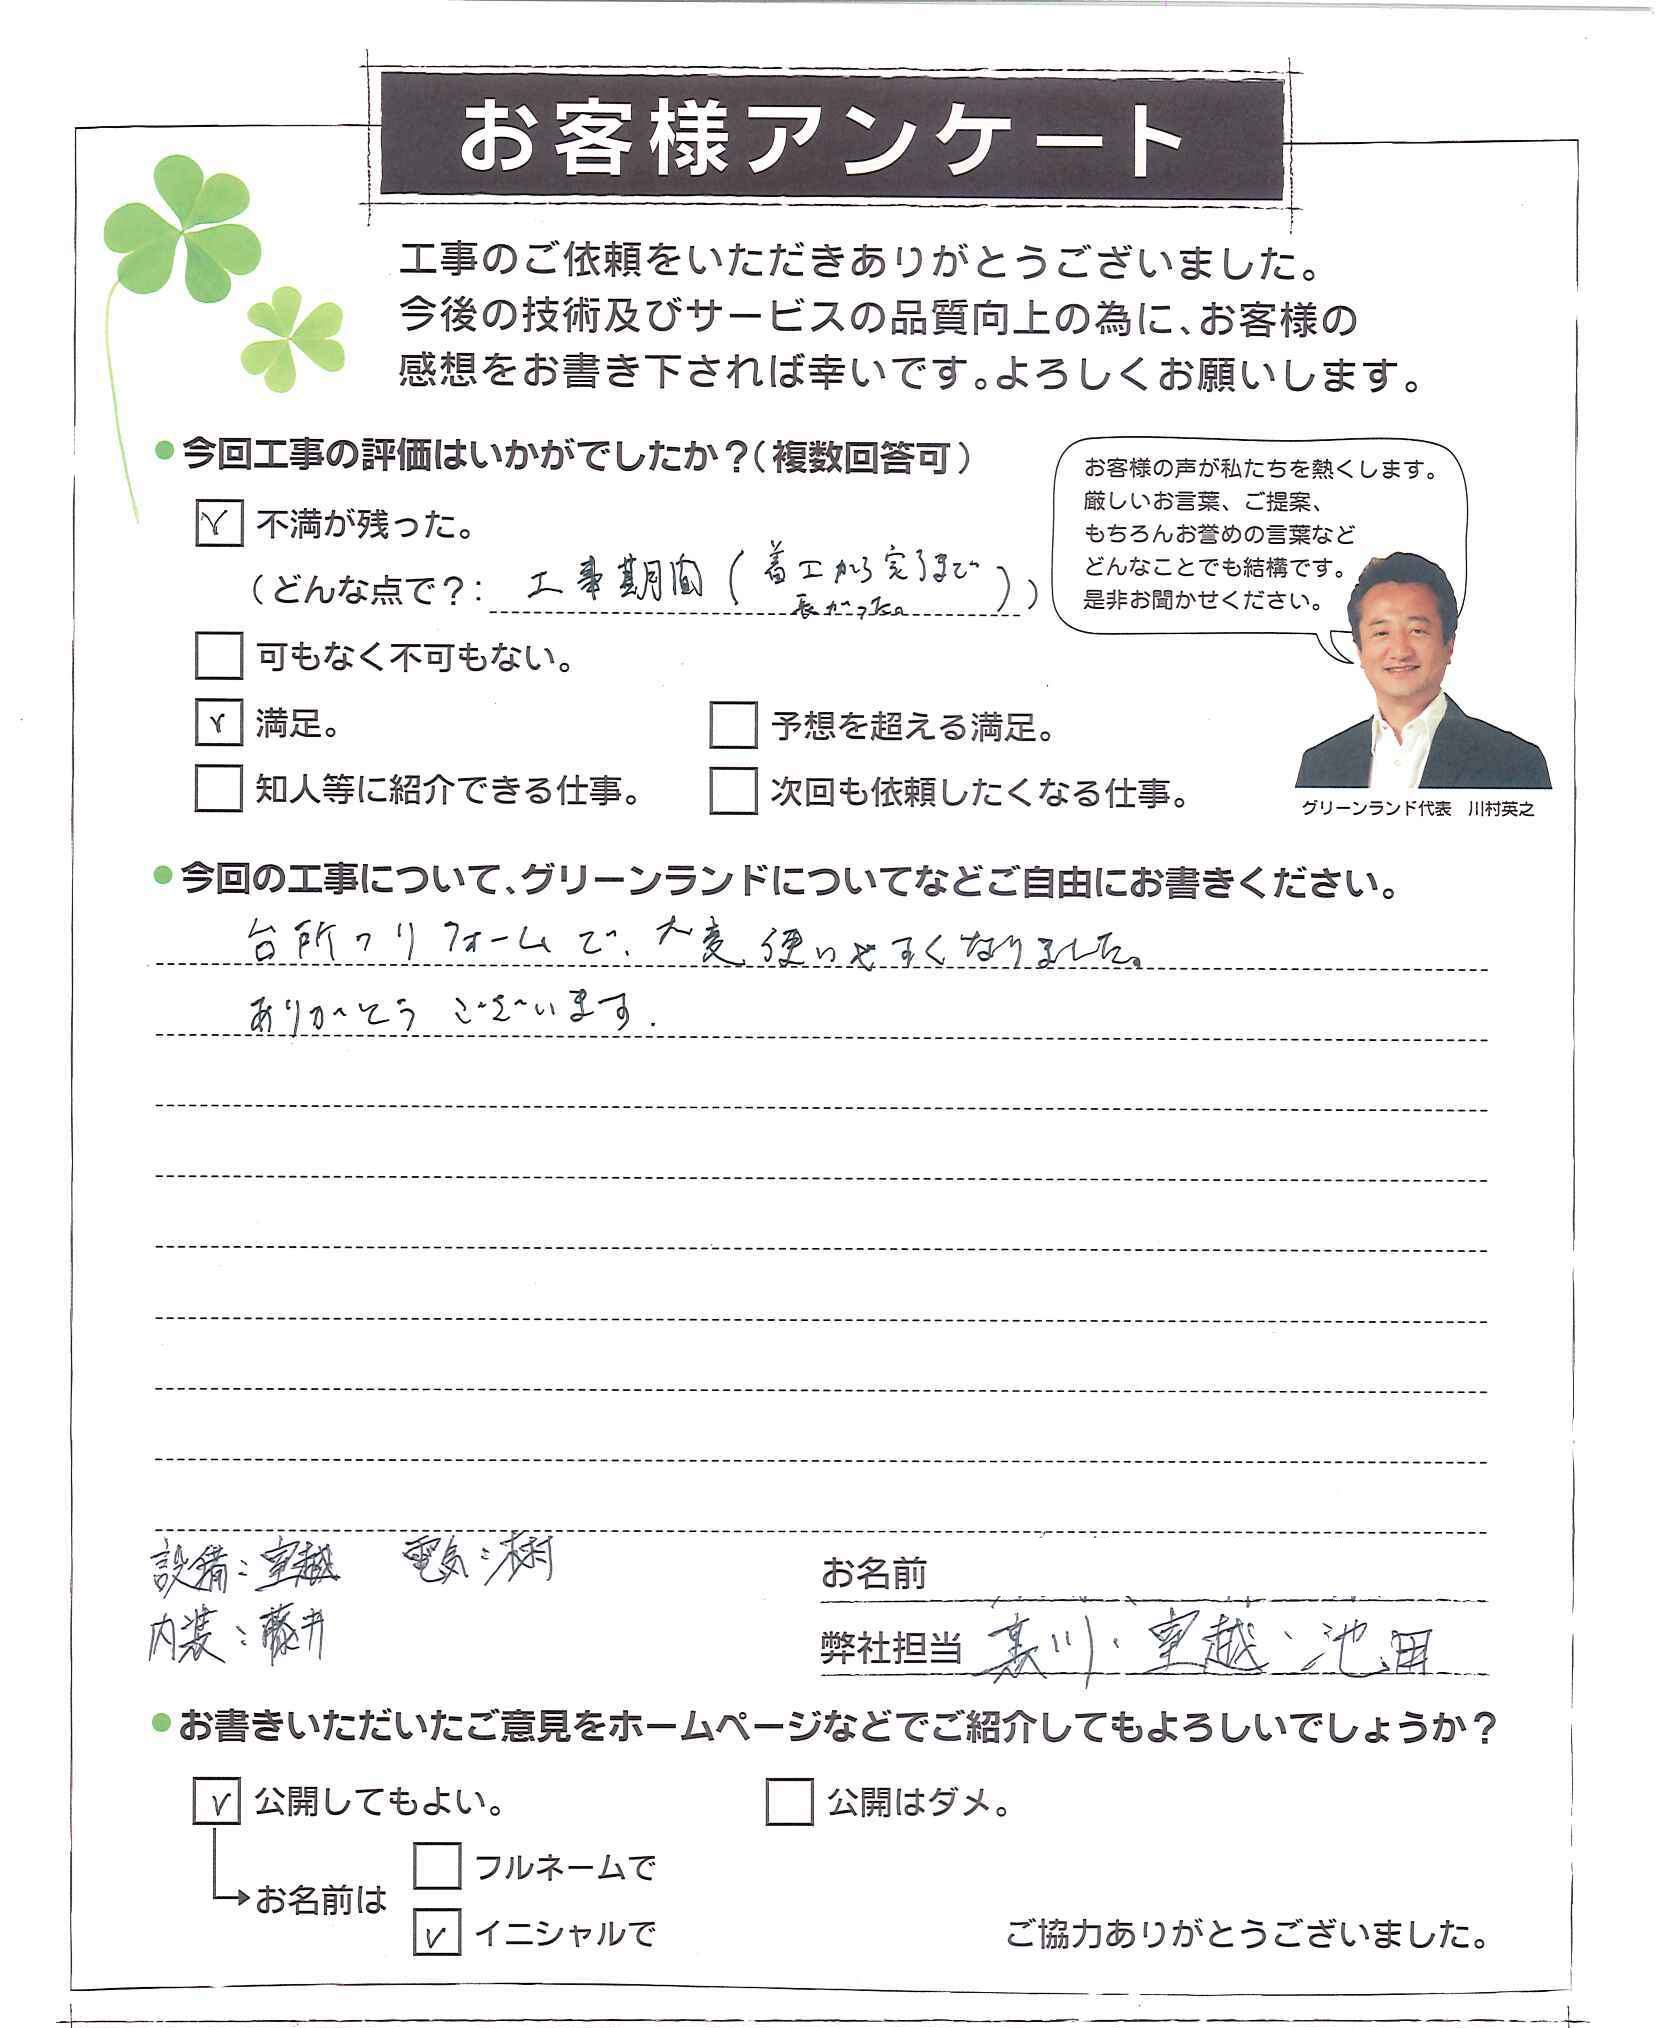 お客様アンケート
工事のご依頼をいただきありがとうございました。
今後の技術及びサービスの品質向上の為に、お客様の
感想をお書き下されば幸いです。よろしくお願いします。
今回工事の評価はいかがでしたか？（複数回答可）
お客様の声が私たちを熱くします。
厳しいお言葉、ご提案、
もちろんお誉めの言葉など
どんなことでも結構です。
是非お聞かせください。
不満が残った。
（どんな点で？：工事期間（着工から完了まで長かった。））
可もなく不可もない。
満足。 予想を超える満足。
知人等に紹介できる仕事。 次回も依頼したくなる仕事。
グリーンランド代表 川村英之
今回の工事について、グリーンランドについてなどご自由にお書きください。
台所のリフォームで、大変使いやすくなりました。
ありがとうございます.
設備：室越 電気：
内装：藤井
お名前
弊社担当 川・室越・池田
お書きいただいたご意見をホームページなどでご紹介してもよろしいでしょうか？
公開してもよい。 公開はダメ。
お名前は フルネームで
イニシャルで
ご協力ありがとうございました。